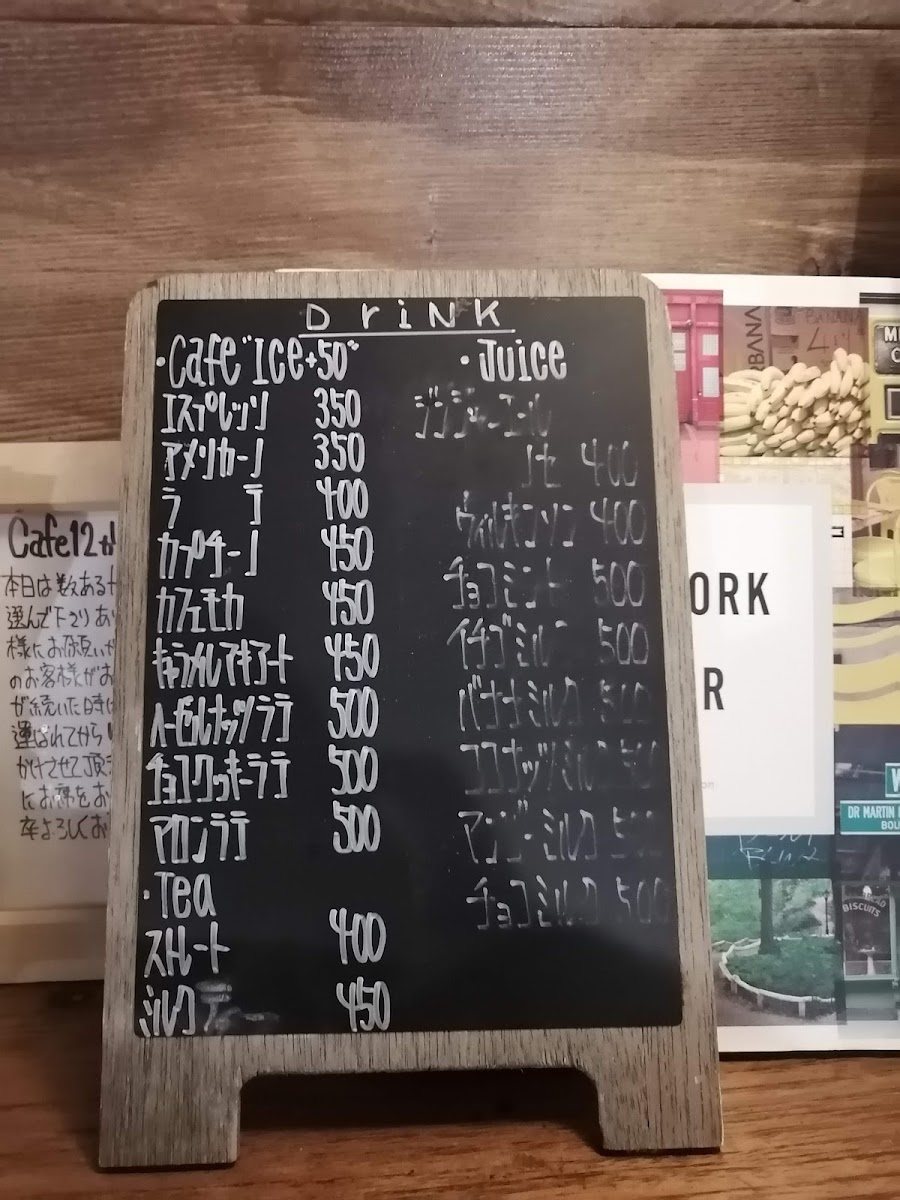 DriNK
・Cafe "Ice+50"
エスプレッソ 350
アメリカーノ 350
ラテ 400
カプチーノ 450
カフェモカ 450
キャラメルマキアート 450
ヘーゼルナッツラテ 500
チョコクッキーラテ 500
マロンラテ 500
・Tea
ストレート 400
ミルクティー 450
・Juice
ジンジャーエール
ノセ 400
ウィルキンソン 400
チョコミント 500
イチゴミルク 500
バナナミルク 500
ココナッツミルク 500
マンゴーミルク 500
チョコミルク 500
Cafe12
本日は数ある
選んで下さりあり
様にお願い
のお客様がお
が続いた時は
運ばれてから
かけさせて頂き
にお席をお
卒よろしくお
ORK
R
BANANA
DR MARTIN
BOU
BISCUITS